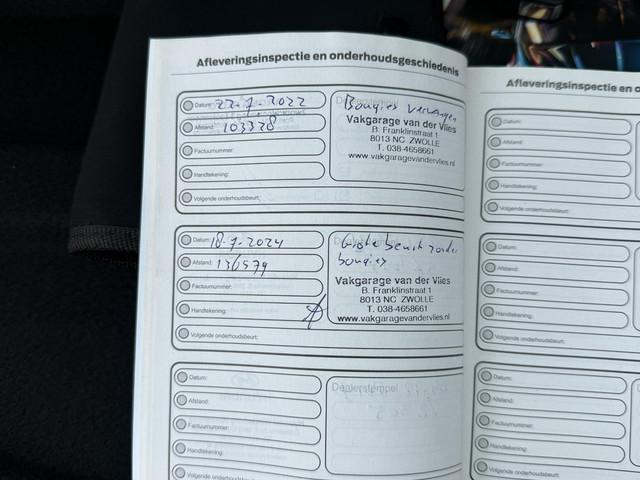 Afleveringsinspectie en onderhoudsgeschiedenis
Datum: 22-7-2022
Afstand: 103328
Factuurnummer:
Handtekening:
Volgende onderhoudsbeurt:
Bougies vervangen
Vakgarage van der Vlies
B. Franklinstraat 1
8013 NC ZWOLLE
T. 038-4658661
www.vakgaragevandervlies.nl
Datum: 18-7-2024
Afstand: 136579
Factuurnummer:
Handtekening:
Volgende onderhoudsbeurt:
Grote beurt zonder
bougies
Vakgarage van der Vlies
B. Franklinstraat 1
8013 NC ZWOLLE
T. 038-4658661
www.vakgaragevandervlies.nl
Datum:
Afstand:
Factuurnummer:
Handtekening:
Volgende onderhoudsbeurt:
Dealerstempel
Afleveringsinspectie en o
Datum:
Afstand:
Factuurnummer:
Handtekening:
Volgende onderhoudsbeurt:
Datum:
Afstand:
Factuurnummer:
Handtekening:
Volgende onderhoudsbeurt:
Datum:
Afstand:
Factuurnummer:
Handtekening:
Volgende onderhoudsbeurt: